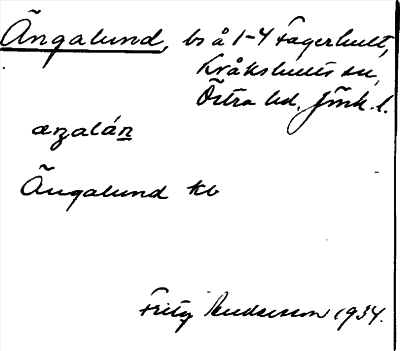 Ängalund, bs å 1-4 Fagerhult,
Kråkshults sn,
Östra hd. Jönk. l.
æŋalán
Ängalund kb
Fritz Andersson 1934.